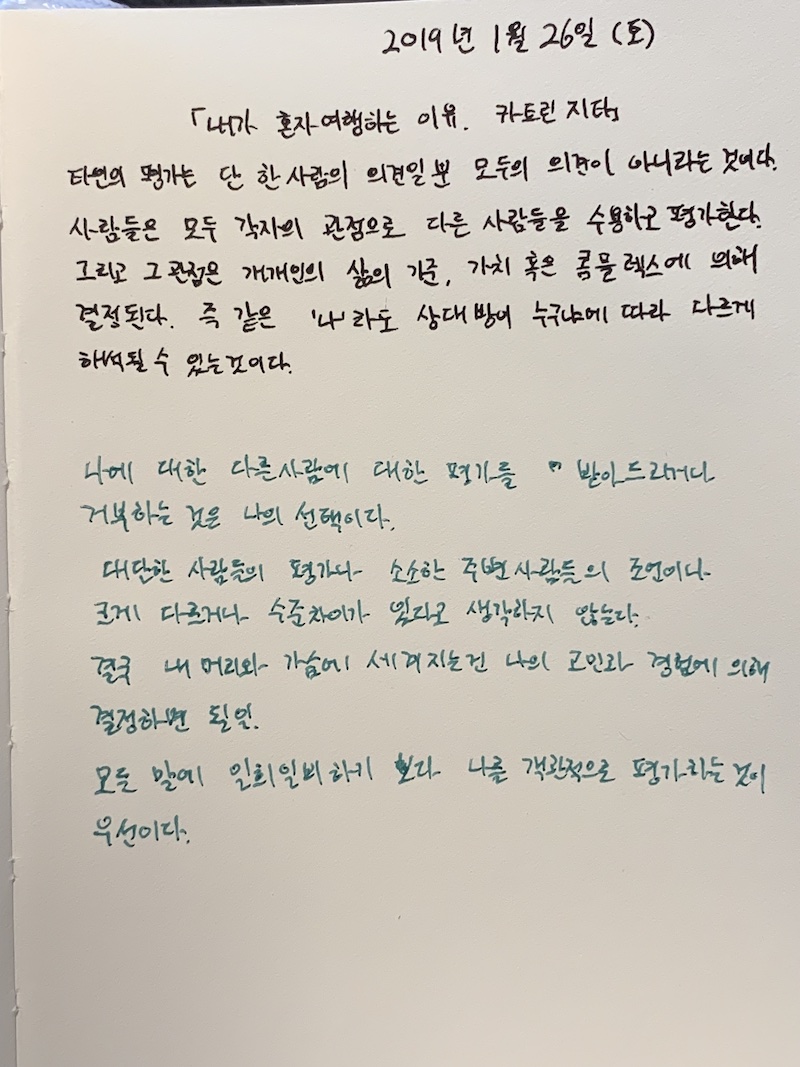 2019년 1월 26일 (토)
「내가 혼자여행하는 이유. 카트린 지타」
타인의 평가는 단 한사람의 의견일 뿐 모두의 의견이 아니라는 것이다.
사람들은 모두 각자의 관점으로 다른 사람들을 수용하고 평가한다.
그리고 그 관점은 개개인의 삶의 기준, 가치 혹은 콤플렉스에 의해
결정된다. 즉 같은 '나'라도 상대방이 누구냐에 따라 다르게
해석될 수 있는것이다.
나에 대한 다른사람에 대한 평가를 받아드리거나
거부하는 것은 나의 선택이다.
대단한 사람들의 평가나 소소한 주변사람들의 조언이나
크게 다르거나 수준차이가 있다고 생각하지 않는다.
결국 내 머리와 가슴에 세겨지는건 나의 고민과 경험에 의해
결정하면 될일.
모든 말에 일희일비하기 보다 나를 객관적으로 평가하는 것이
우선이다.